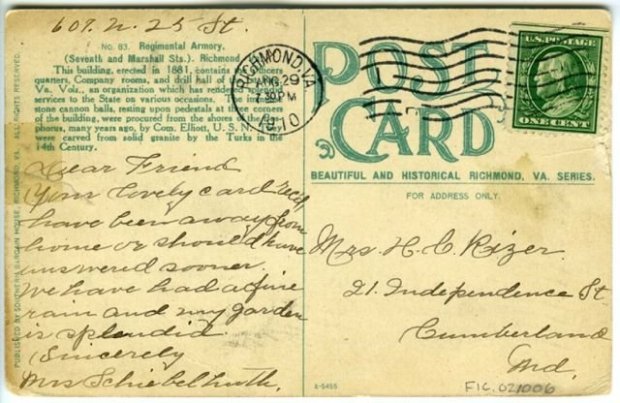 609. N. 25 St.
No. 83. Regimental Armory,
(Seventh and Marshall Sts.). Richmond
This building, erected in 1881, contains the Officers
quarters, Company rooms, and drill hall of the
Va. Vols., an organization which has rendered splendid
services to the State on various occasions. The immense
stone cannon balls, resting upon pedestals at the corners
of the building, were procured from the shores of the
phorus, many years ago, by Com. Elliott, U. S. N.
were carved from solid granite by the Turks in the
14th Century.
Dear Friend
Your lovely card recd
have been away from
home or should have
answered sooner.
We have had a fine
rain and my garden
is splendid.
Sincerely
Mrs Schiebelhuth.
PUBLISHED BY SOUTHERN BARGAIN HOUSE, RICHMOND, VA. ALL RIGHTS RESERVED.
RICHMOND, VA.
AUG 29
7-30 PM
1910
POST
CARD
U.S. POSTAGE
ONE CENT
BEAUTIFUL AND HISTORICAL RICHMOND, VA. SERIES.
FOR ADDRESS ONLY.
Mrs H. C. Rizer.
21. Independence St
Cumberland
Md.
E-5455
FIC.021006